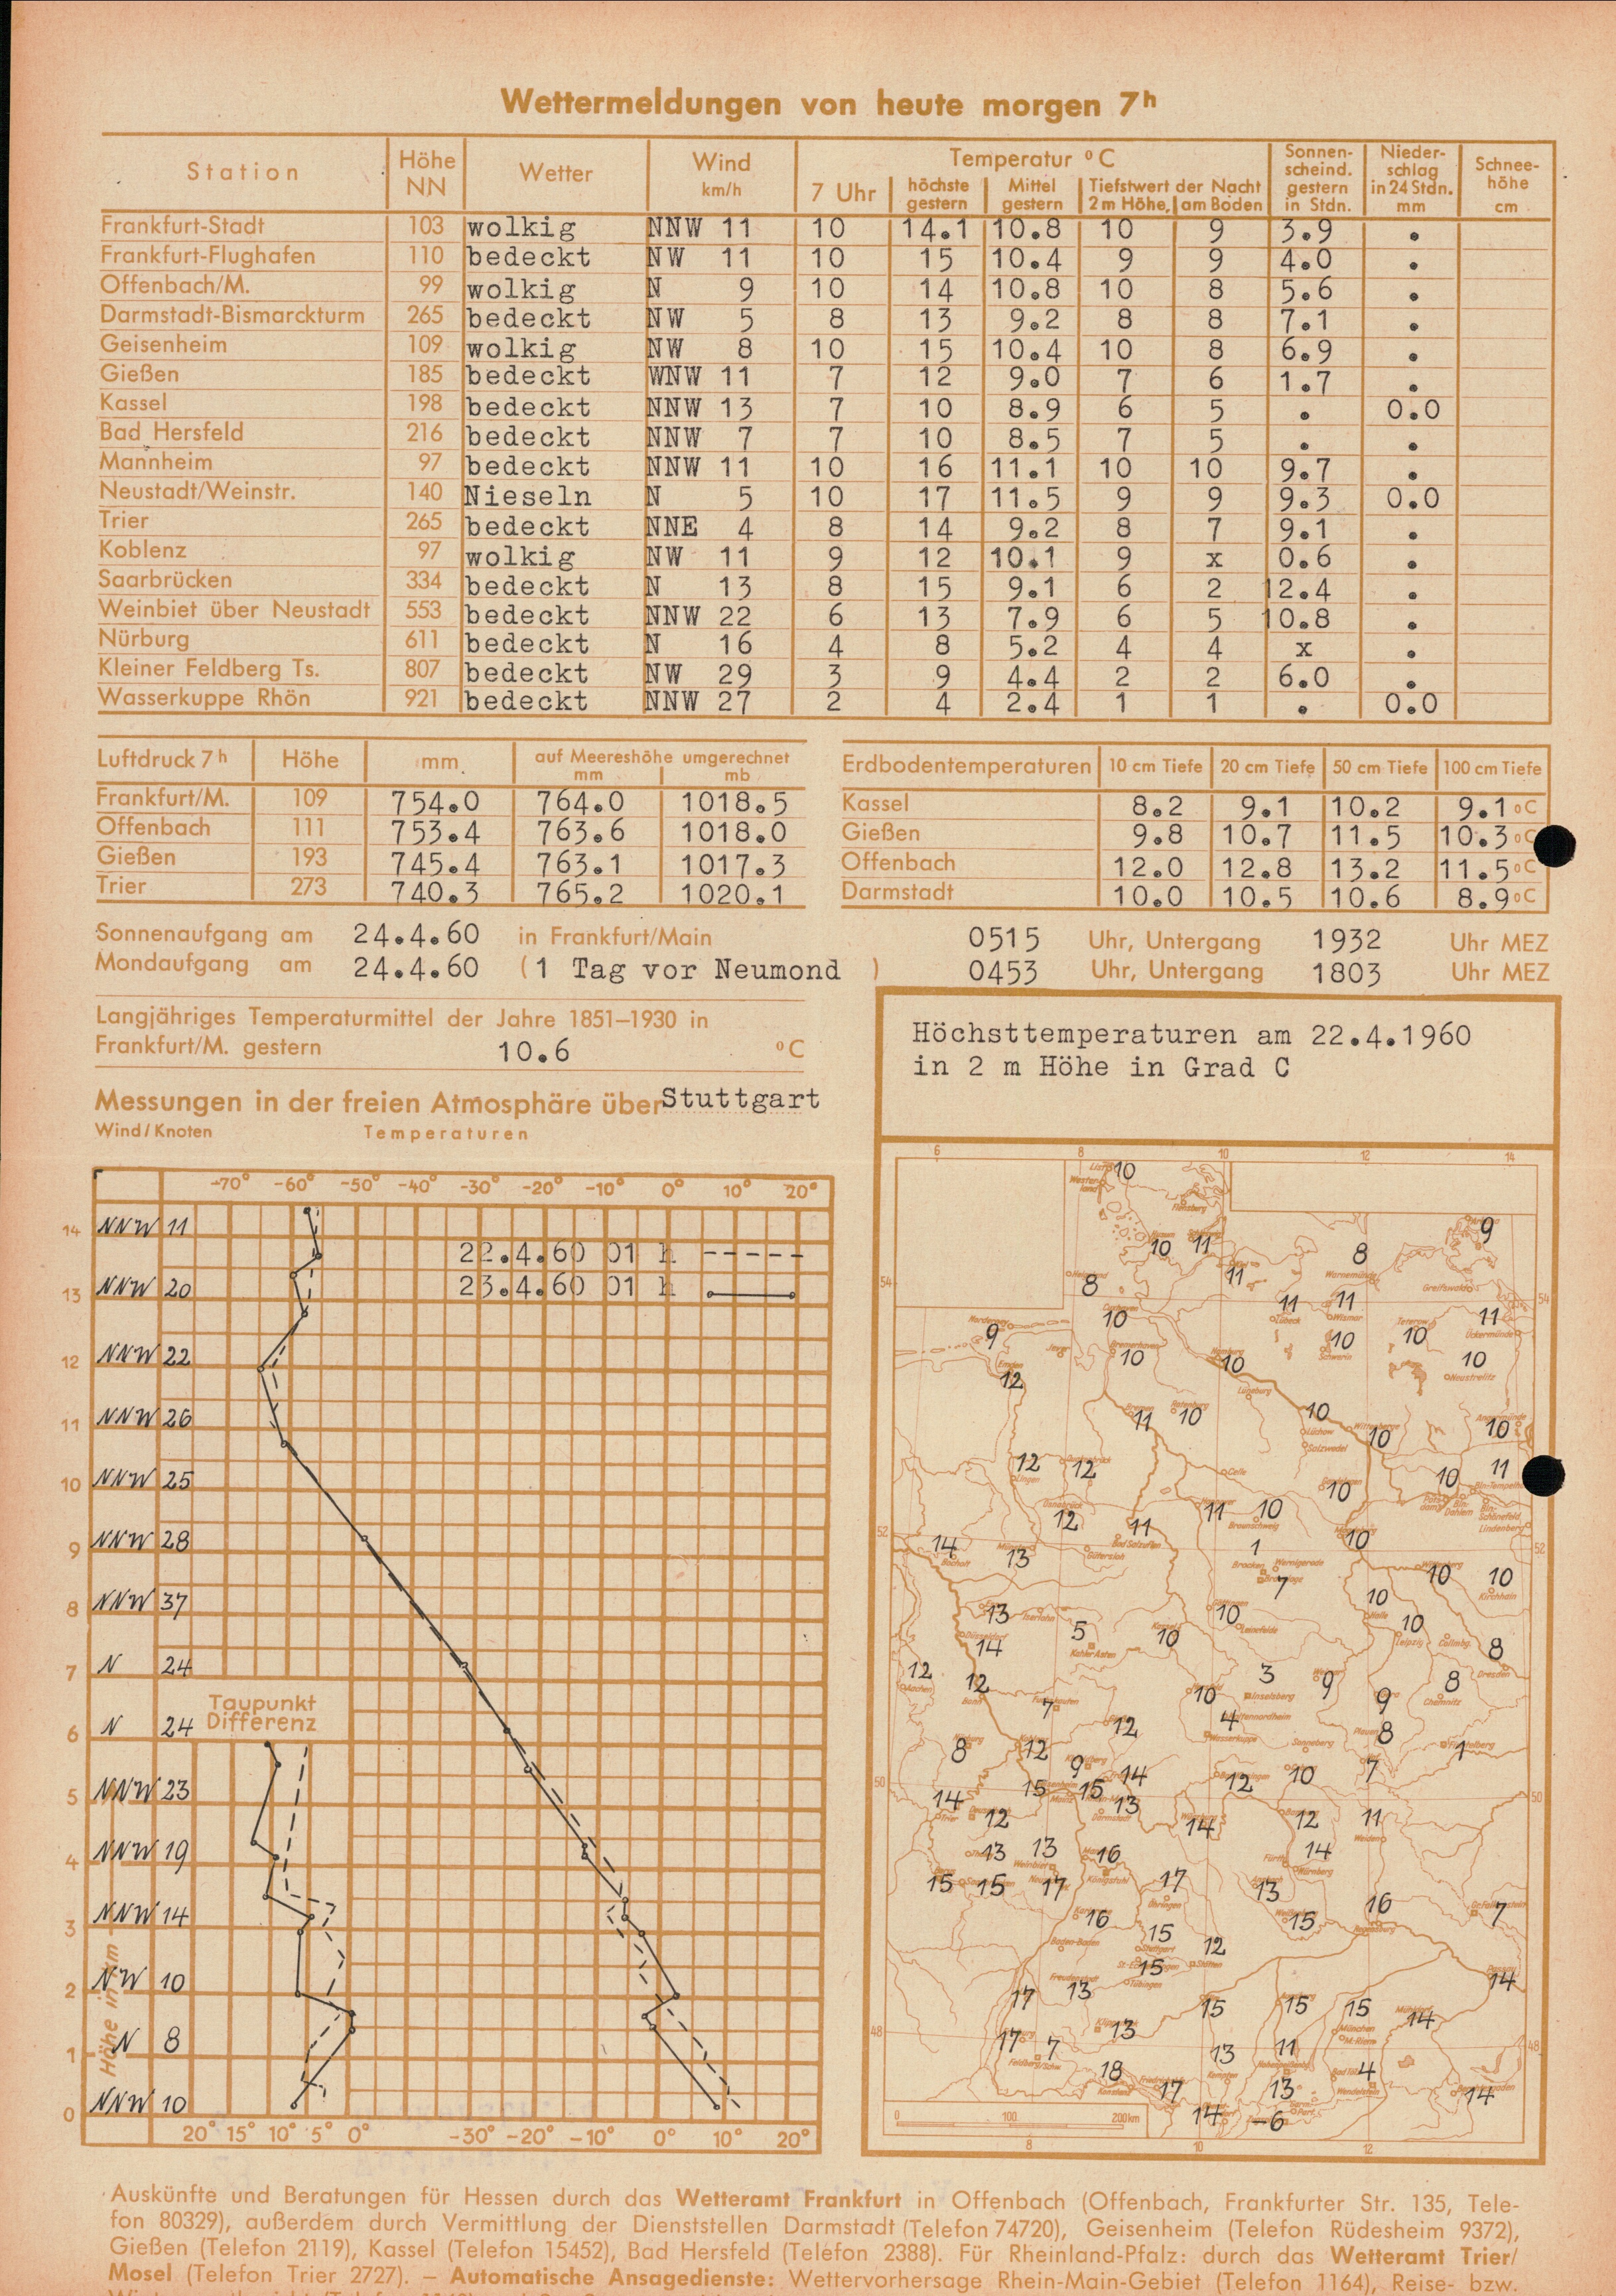 Wettermeldungen von heute morgen 7h
Station | Höhe NN | Wetter | Wind km/h | Temperatur °C | Sonnenscheind. gestern in Stdn. | Niederschlag in 24 Stdn. mm | Schneehöhe cm
7 Uhr | höchste gestern | Mittel gestern | Tiefstwert der Nacht 2 m Höhe, | am Boden
Frankfurt-Stadt 103 wolkig NNW 11 10 14.1 10.8 10 9 3.9 .
Frankfurt-Flughafen 110 bedeckt NW 11 10 15 10.4 9 9 4.0 .
Offenbach/M. 99 wolkig N 9 10 14 10.8 10 8 5.6 .
Darmstadt-Bismarckturm 265 bedeckt NW 5 8 13 9.2 8 8 7.1 .
Geisenheim 109 wolkig NW 8 10 15 10.4 10 8 6.9 .
Gießen 185 bedeckt WNW 11 7 12 9.0 7 6 1.7 .
Kassel 198 bedeckt NNW 13 7 10 8.9 6 5 . 0.0
Bad Hersfeld 216 bedeckt NNW 7 7 10 8.5 7 5 . .
Mannheim 97 bedeckt NNW 11 10 16 11.1 10 10 9.7 .
Neustadt/Weinstr. 140 Nieseln N 5 10 17 11.5 9 9 9.3 0.0
Trier 265 bedeckt NNE 4 8 14 9.2 8 7 9.1 .
Koblenz 97 wolkig NW 11 9 12 10.1 9 x 0.6 .
Saarbrücken 334 bedeckt N 13 8 15 9.1 6 2 12.4 .
Weinbiet über Neustadt 553 bedeckt NNW 22 6 13 7.9 6 5 10.8 .
Nürburg 611 bedeckt N 16 4 8 5.2 4 4 x .
Kleiner Feldberg Ts. 807 bedeckt NW 29 3 9 4.4 2 2 6.0 .
Wasserkuppe Rhön 921 bedeckt NNW 27 2 4 2.4 1 1 . 0.0
Luftdruck 7h | Höhe | mm | auf Meereshöhe umgerechnet mm | mb
Frankfurt/M. 109 754.0 764.0 1018.5
Offenbach 111 753.4 763.6 1018.0
Gießen 193 745.4 763.1 1017.3
Trier 273 740.3 765.2 1020.1
Erdbodentemperaturen | 10 cm Tiefe | 20 cm Tiefe | 50 cm Tiefe | 100 cm Tiefe
Kassel 8.2 9.1 10.2 9.1 °C
Gießen 9.8 10.7 11.5 10.3 °C
Offenbach 12.0 12.8 13.2 11.5 °C
Darmstadt 10.0 10.5 10.6 8.9 °C
Sonnenaufgang am 24.4.60 in Frankfurt/Main 0515 Uhr, Untergang 1932 Uhr MEZ
Mondaufgang am 24.4.60 (1 Tag vor Neumond ) 0453 Uhr, Untergang 1803 Uhr MEZ
Langjähriges Temperaturmittel der Jahre 1851–1930 in
Frankfurt/M. gestern 10.6 °C
Messungen in der freien Atmosphäre über Stuttgart
Wind/Knoten Temperaturen
-70° -60° -50° -40° -30° -20° -10° 0° 10° 20°
14 NNW 11
22.4.60 01 h -----
23.4.60 01 h
13 NNW 20
12 NNW 22
11 NNW 26
10 NNW 25
9 NNW 28
8 NNW 37
7 N 24
Taupunkt
Differenz
6 N 24
5 NNW 23
4 NNW 19
3 NNW 14
2 NW 10
1 N 8
0 NNW 10
Höhe in km
20° 15° 10° 5° 0° -30° -20° -10° 0° 10° 20°
Höchsttemperaturen am 22.4.1960
in 2 m Höhe in Grad C
6 8 10 12 14
10
9
10 11 8
54 8 11
11 11 11 54
10
9 10 10
10 10 10
12
11 10 10 10 10
12 12 10 10 11
12 11 11 10
52 14 13 1 10 52
7 10 10
13 10 10
14 5 10 10 8
12 12 3 9 8
7 10 9
12 4 8
8 12 9 1
50 15 15 14 12 10 7 50
14 12 13 14 12 11
13 13 16 14
15 15 17 17 13 16
16 15 7
15 12
15 14
17 13 15 15 15 14
48 17 7 13 13 11 48
18 17 13 4 14
14 -6
0 100 200 km
8 10 12
Auskünfte und Beratungen für Hessen durch das Wetteramt Frankfurt in Offenbach (Offenbach, Frankfurter Str. 135, Tele-
fon 80329), außerdem durch Vermittlung der Dienststellen Darmstadt (Telefon 74720), Geisenheim (Telefon Rüdesheim 9372),
Gießen (Telefon 2119), Kassel (Telefon 15452), Bad Hersfeld (Telefon 2388). Für Rheinland-Pfalz: durch das Wetteramt Trier/
Mosel (Telefon Trier 2727). — Automatische Ansagedienste: Wettervorhersage Rhein-Main-Gebiet (Telefon 1164), Reise- bzw.